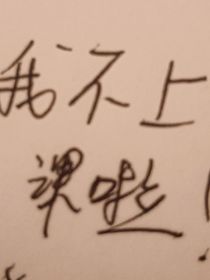 我不上
课啦！